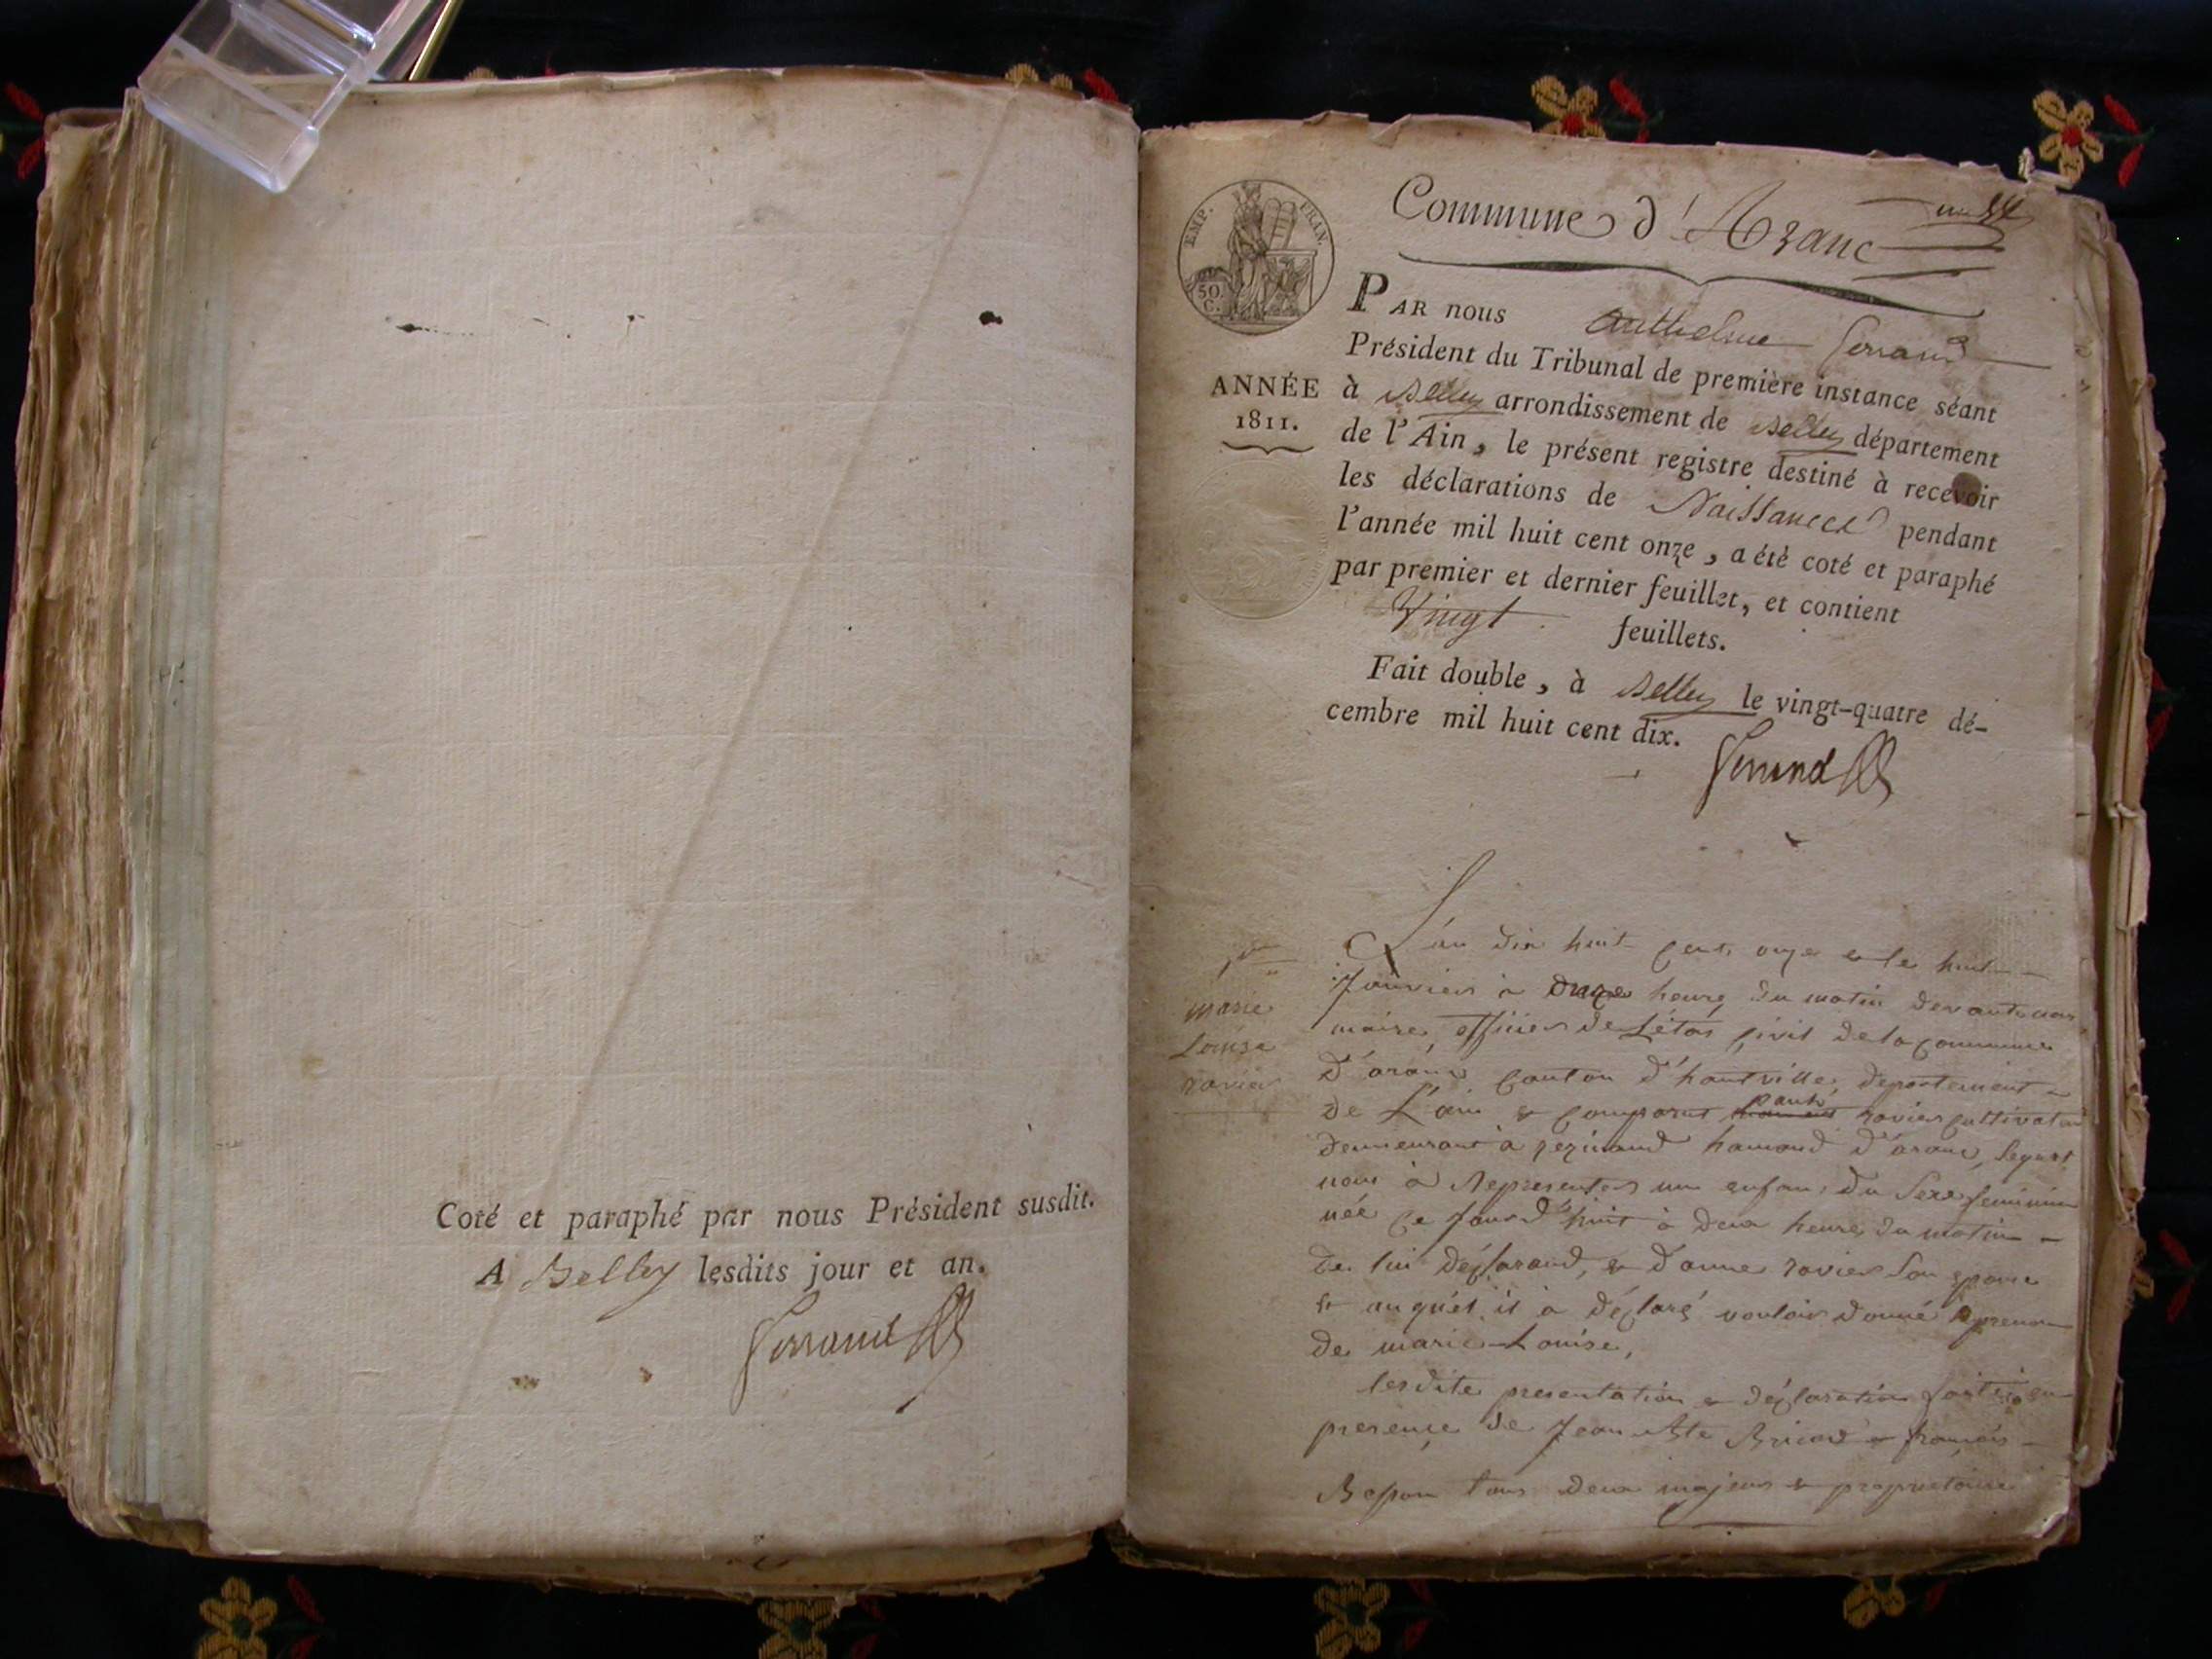 Coté et paraphé par nous Président susdit.
A Belley lesdits jour et an.
Ferrand
Commune d'Aranc
EMP. FRAN.
50 C.
ANNÉE
1811.
PAR nous Anthelme Ferrand
Président du Tribunal de première instance séant
à Belley arrondissement de Belley département
de l'Ain, le présent registre destiné à recevoir
les déclarations de Naissances pendant
l'année mil huit cent onze, a été coté et paraphé
par premier et dernier feuillet, et contient
Vingt feuillets.
Fait double, à Belley le vingt-quatre dé-
cembre mil huit cent dix.
Ferrand
marie
Louise
ravier
L'an dix huit cent onze & le huit
Janvier à heure du matin devant nous
maire, officier de L'état civil de la commune
d'aranc canton d'hautville, departement
de L'ain & comparut ravier cultivateur
demeurant à rezinand hamaud d'aranc, lequel
nous à Representer un enfant du Sexe feminin
née ce Jourd'huit à deux heures du matin
de lui déclarand, & d'anne ravier Son epouse
& auquel il à déclaré vouloir donné le prenom
de marie-Louise,
lesdite presentation & déclaration faite en
presence de Jean Bte & françois
tous deux majeur & proprietaire